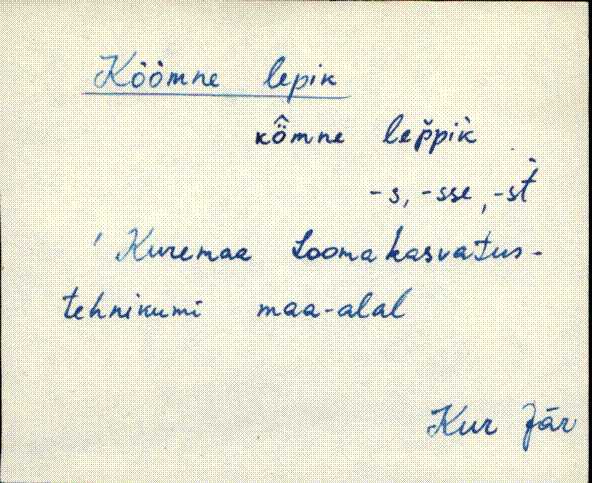 Köömne lepik
kö̂mne lep̌pik̀
-s, -sse, -st̀
' Kuremaa Loomakasvatus-
tehnikumi maa-alal
Kur Jär